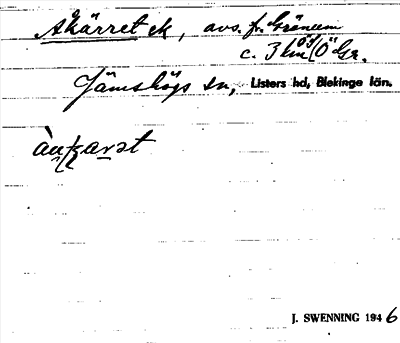 Åkärret ck, avs. fr. Gränum
c. 3 km OSO Gr.
Jämshögs sn, Listers hd, Blekinge län.
J. SWENNING 1946